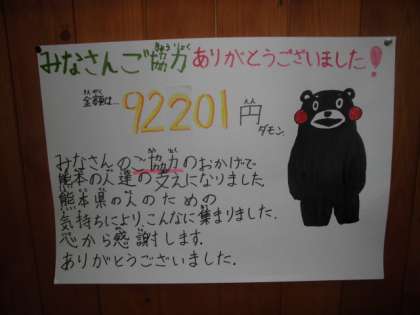 みなさんご協力ありがとうございました!
金額は… 92201円ダモン.
みなさんのご協力のおかげで
熊本の人達の支えになりました.
熊本県の人のための
気持ちにより、こんなに集まりました.
心から感謝します.
ありがとうございました.